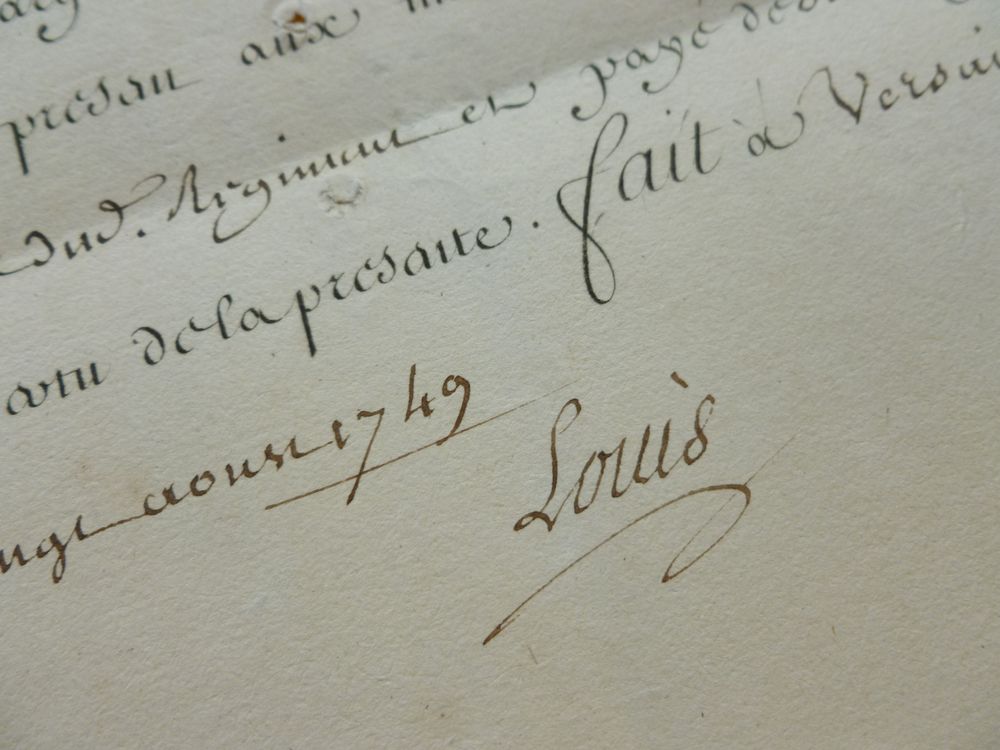 presan aux
dud. Regiment et payé de
vertu de la presante. fait à Versai
vingt aoust 1749
Louis